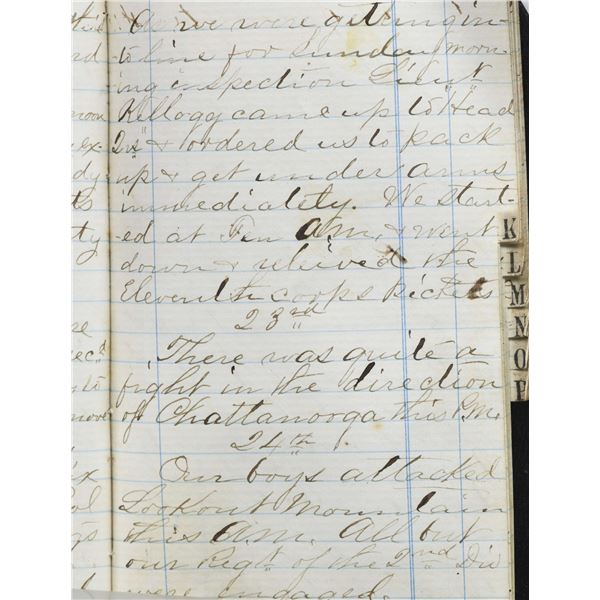 As we were getting in-
to line for Sunday morn-
ing inspection Lieut
Kellogg came up to Head
Qrs & ordered us to pack
up & get under arms
immediately. We start-
ed at Ten A.M. & went
down & relieved the
Eleventh coops Pickets
23rd
There was quite a
fight in the direction
of Chattanooga this P.M.
24th
Our boys attacked
Lookout Mountain
this A.M. All but
our Regt. of the 2nd Div
were engaged.
K
L
M
N
O
P